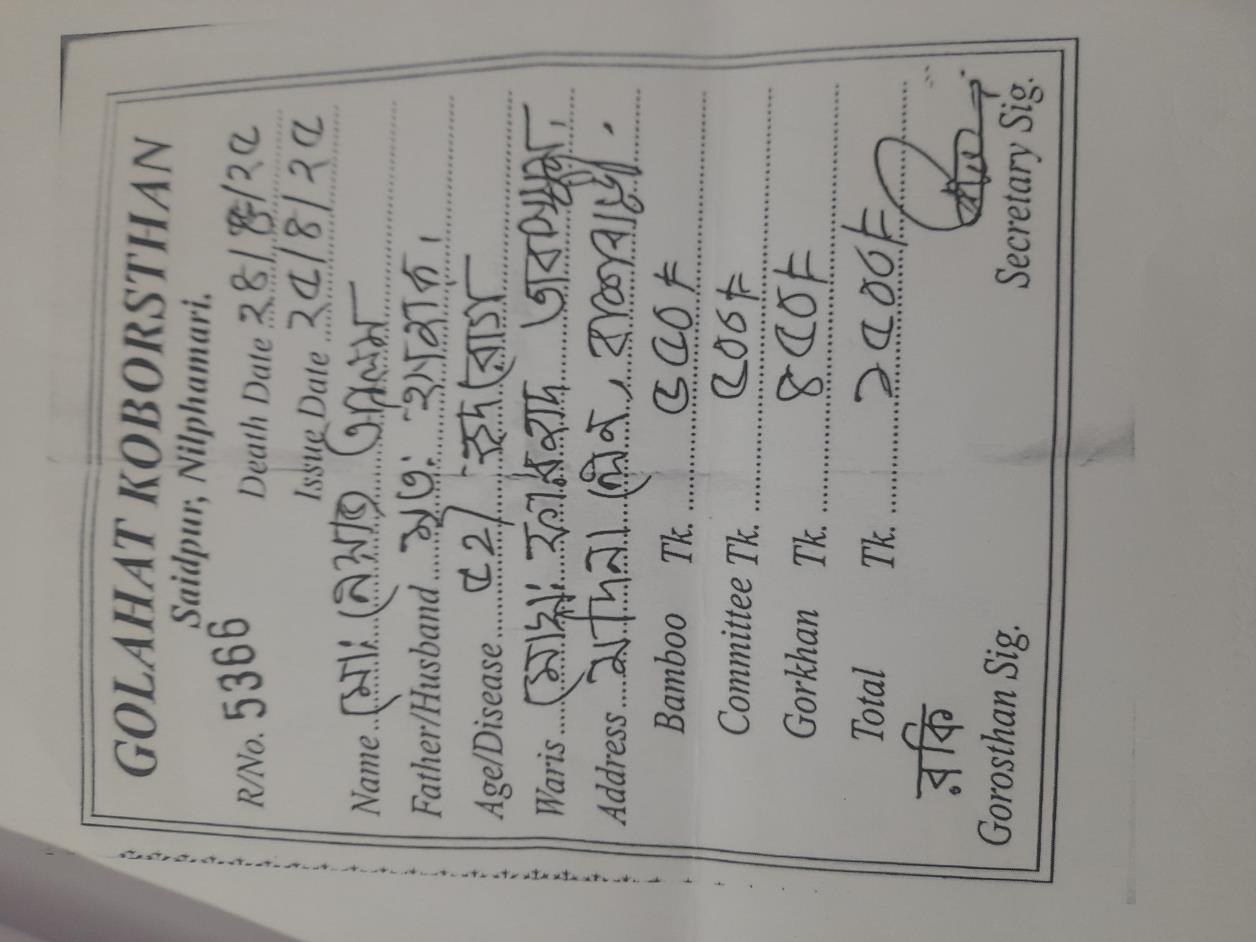 GOLAHAT KOBORSTHAN
Saidpur, Nilphamari.
R/No. 5366 Death Date ২৪/৪/২৫
Issue Date ২৫/৪/২৫
Name মোঃ নেমাত
Father/Husband মৃত:
Age/Disease ৫২/ হৃদরোগ
Waris মোছা:
Address মদিনা লেন,
Bamboo Tk. ৫৫০৳
Committee Tk. ৫০০৳
Gorkhan Tk. ৪৫০৳
Total Tk. ১৫০০৳
রকি
Gorosthan Sig. Secretary Sig.